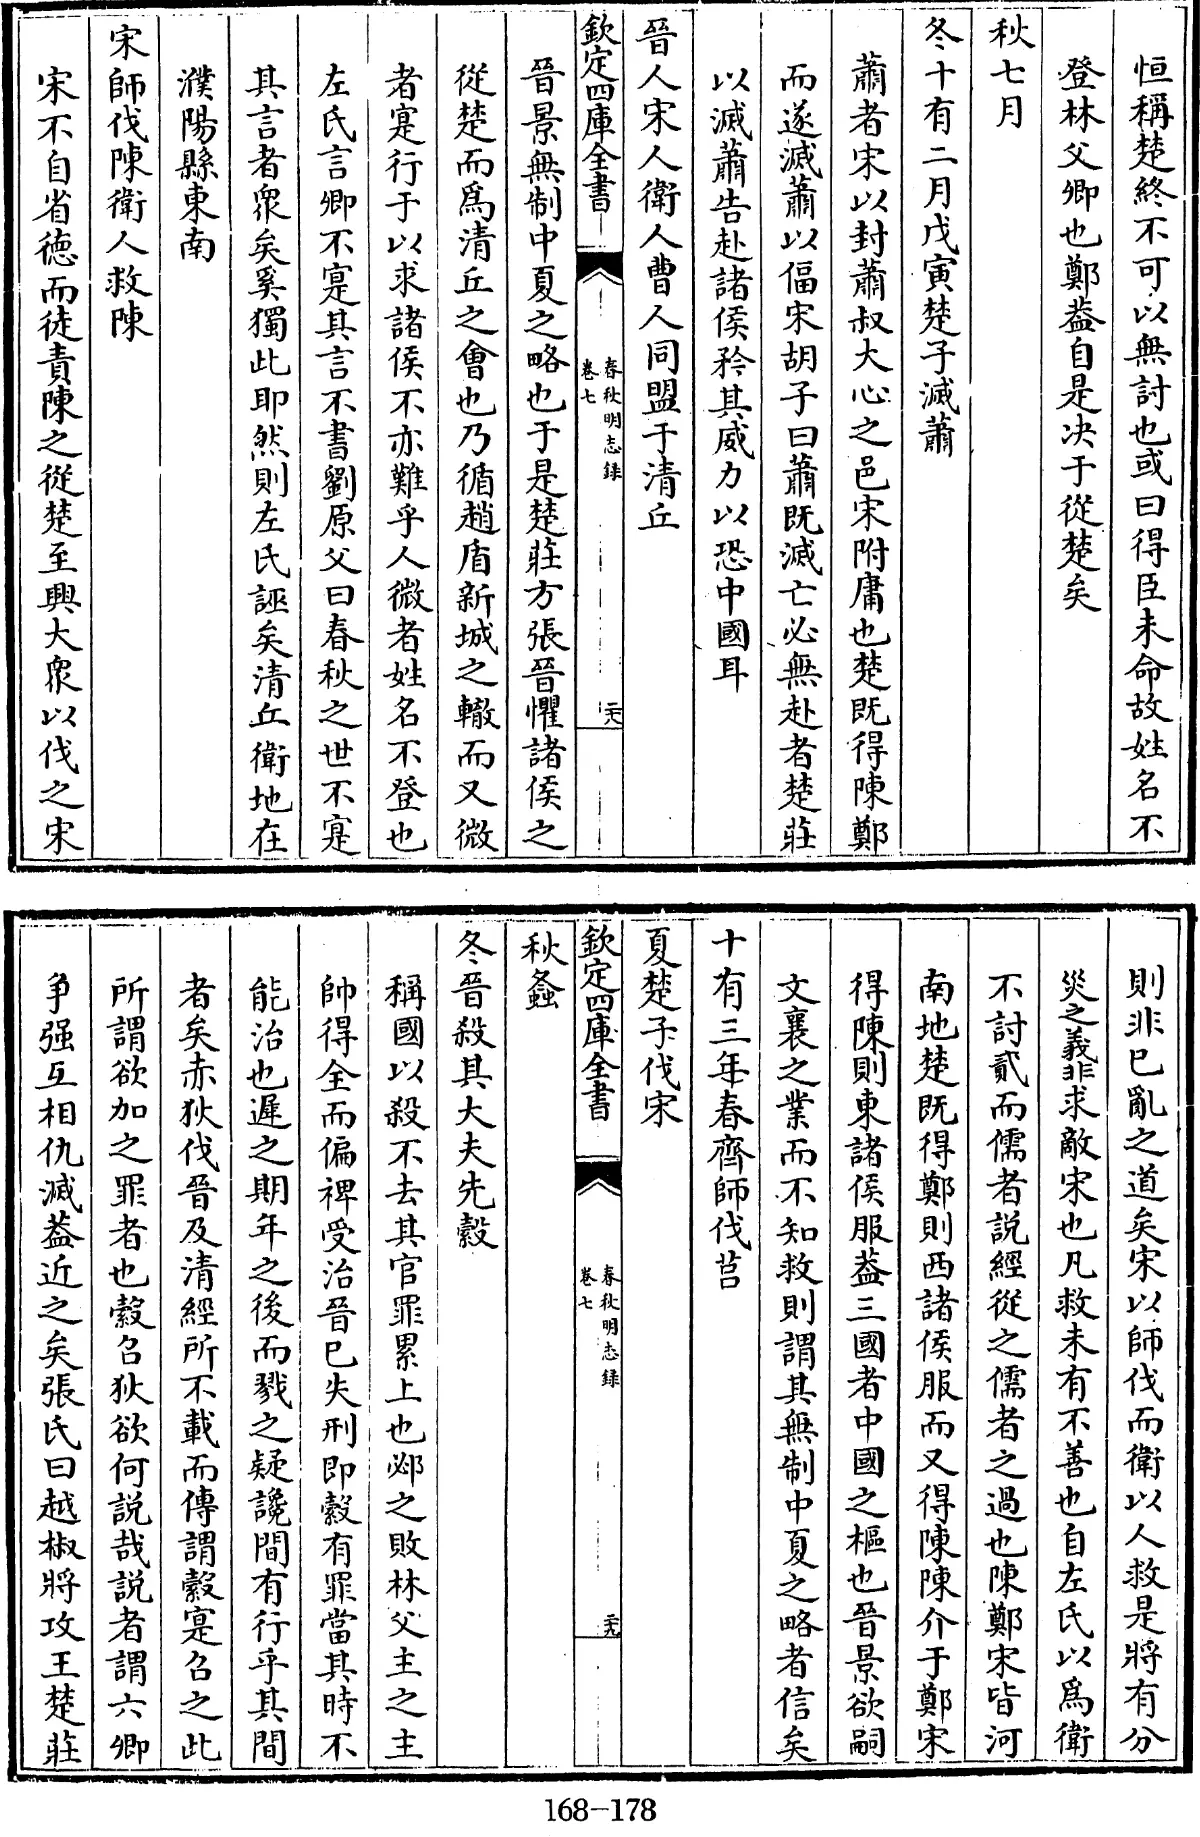 恒稱楚終不可以無討也或曰得臣未命故姓名不
登林父卿也鄭葢自是决于從楚矣
秋七月
冬十有二月戊寅楚子滅蕭
蕭者宋以封蕭叔大心之邑宋附庸也楚既得陳鄭
而遂滅蕭以偪宋胡子曰蕭既滅亡必無赴者楚莊
以滅蕭告赴諸侯矜其威力以恐中國耳
晉人宋人衛人曹人同盟于清丘
欽定四庫全書
春秋明志録
卷七
二六
晉景無制中夏之略也于是楚莊方張晉懼諸侯之
從楚而爲清丘之會也乃循趙盾新城之轍而又微
者寔行于以求諸侯不亦難乎人微者姓名不登也
左氏言卿不寔其言不書劉原父曰春秋之世不寔
其言者衆矣奚獨此耶然則左氏誣矣清丘衛地在
濮陽縣東南
宋師伐陳衛人救陳
宋不自省德而徒責陳之從楚至興大衆以伐之宋
則非已亂之道矣宋以師伐而衛以人救是將有分
災之義非求敵宋也凡救未有不善也自左氏以爲衛
不討貳而儒者説經從之儒者之過也陳鄭宋皆河
南地楚既得鄭則西諸侯服而又得陳陳介于鄭宋
得陳則東諸侯服葢三國者中國之樞也晉景欲嗣
文襄之業而不知救則謂其無制中夏之略者信矣
十有三年春齊師伐莒
夏楚子伐宋
欽定四庫全書
春秋明志録
卷七
二九
秋螽
冬晉殺其大夫先縠
稱國以殺不去其官罪累上也邲之敗林父主之主
帥得全而偏裨受治晉已失刑即縠有罪當其時不
能治也遲之期年之後而戮之疑讒間有行乎其間
者矣赤狄伐晉及清經所不載而傳謂縠寔召之此
所謂欲加之罪者也縠召狄欲何説哉説者謂六卿
爭强互相仇滅葢近之矣張氏曰越椒將攻王楚莊
168-178